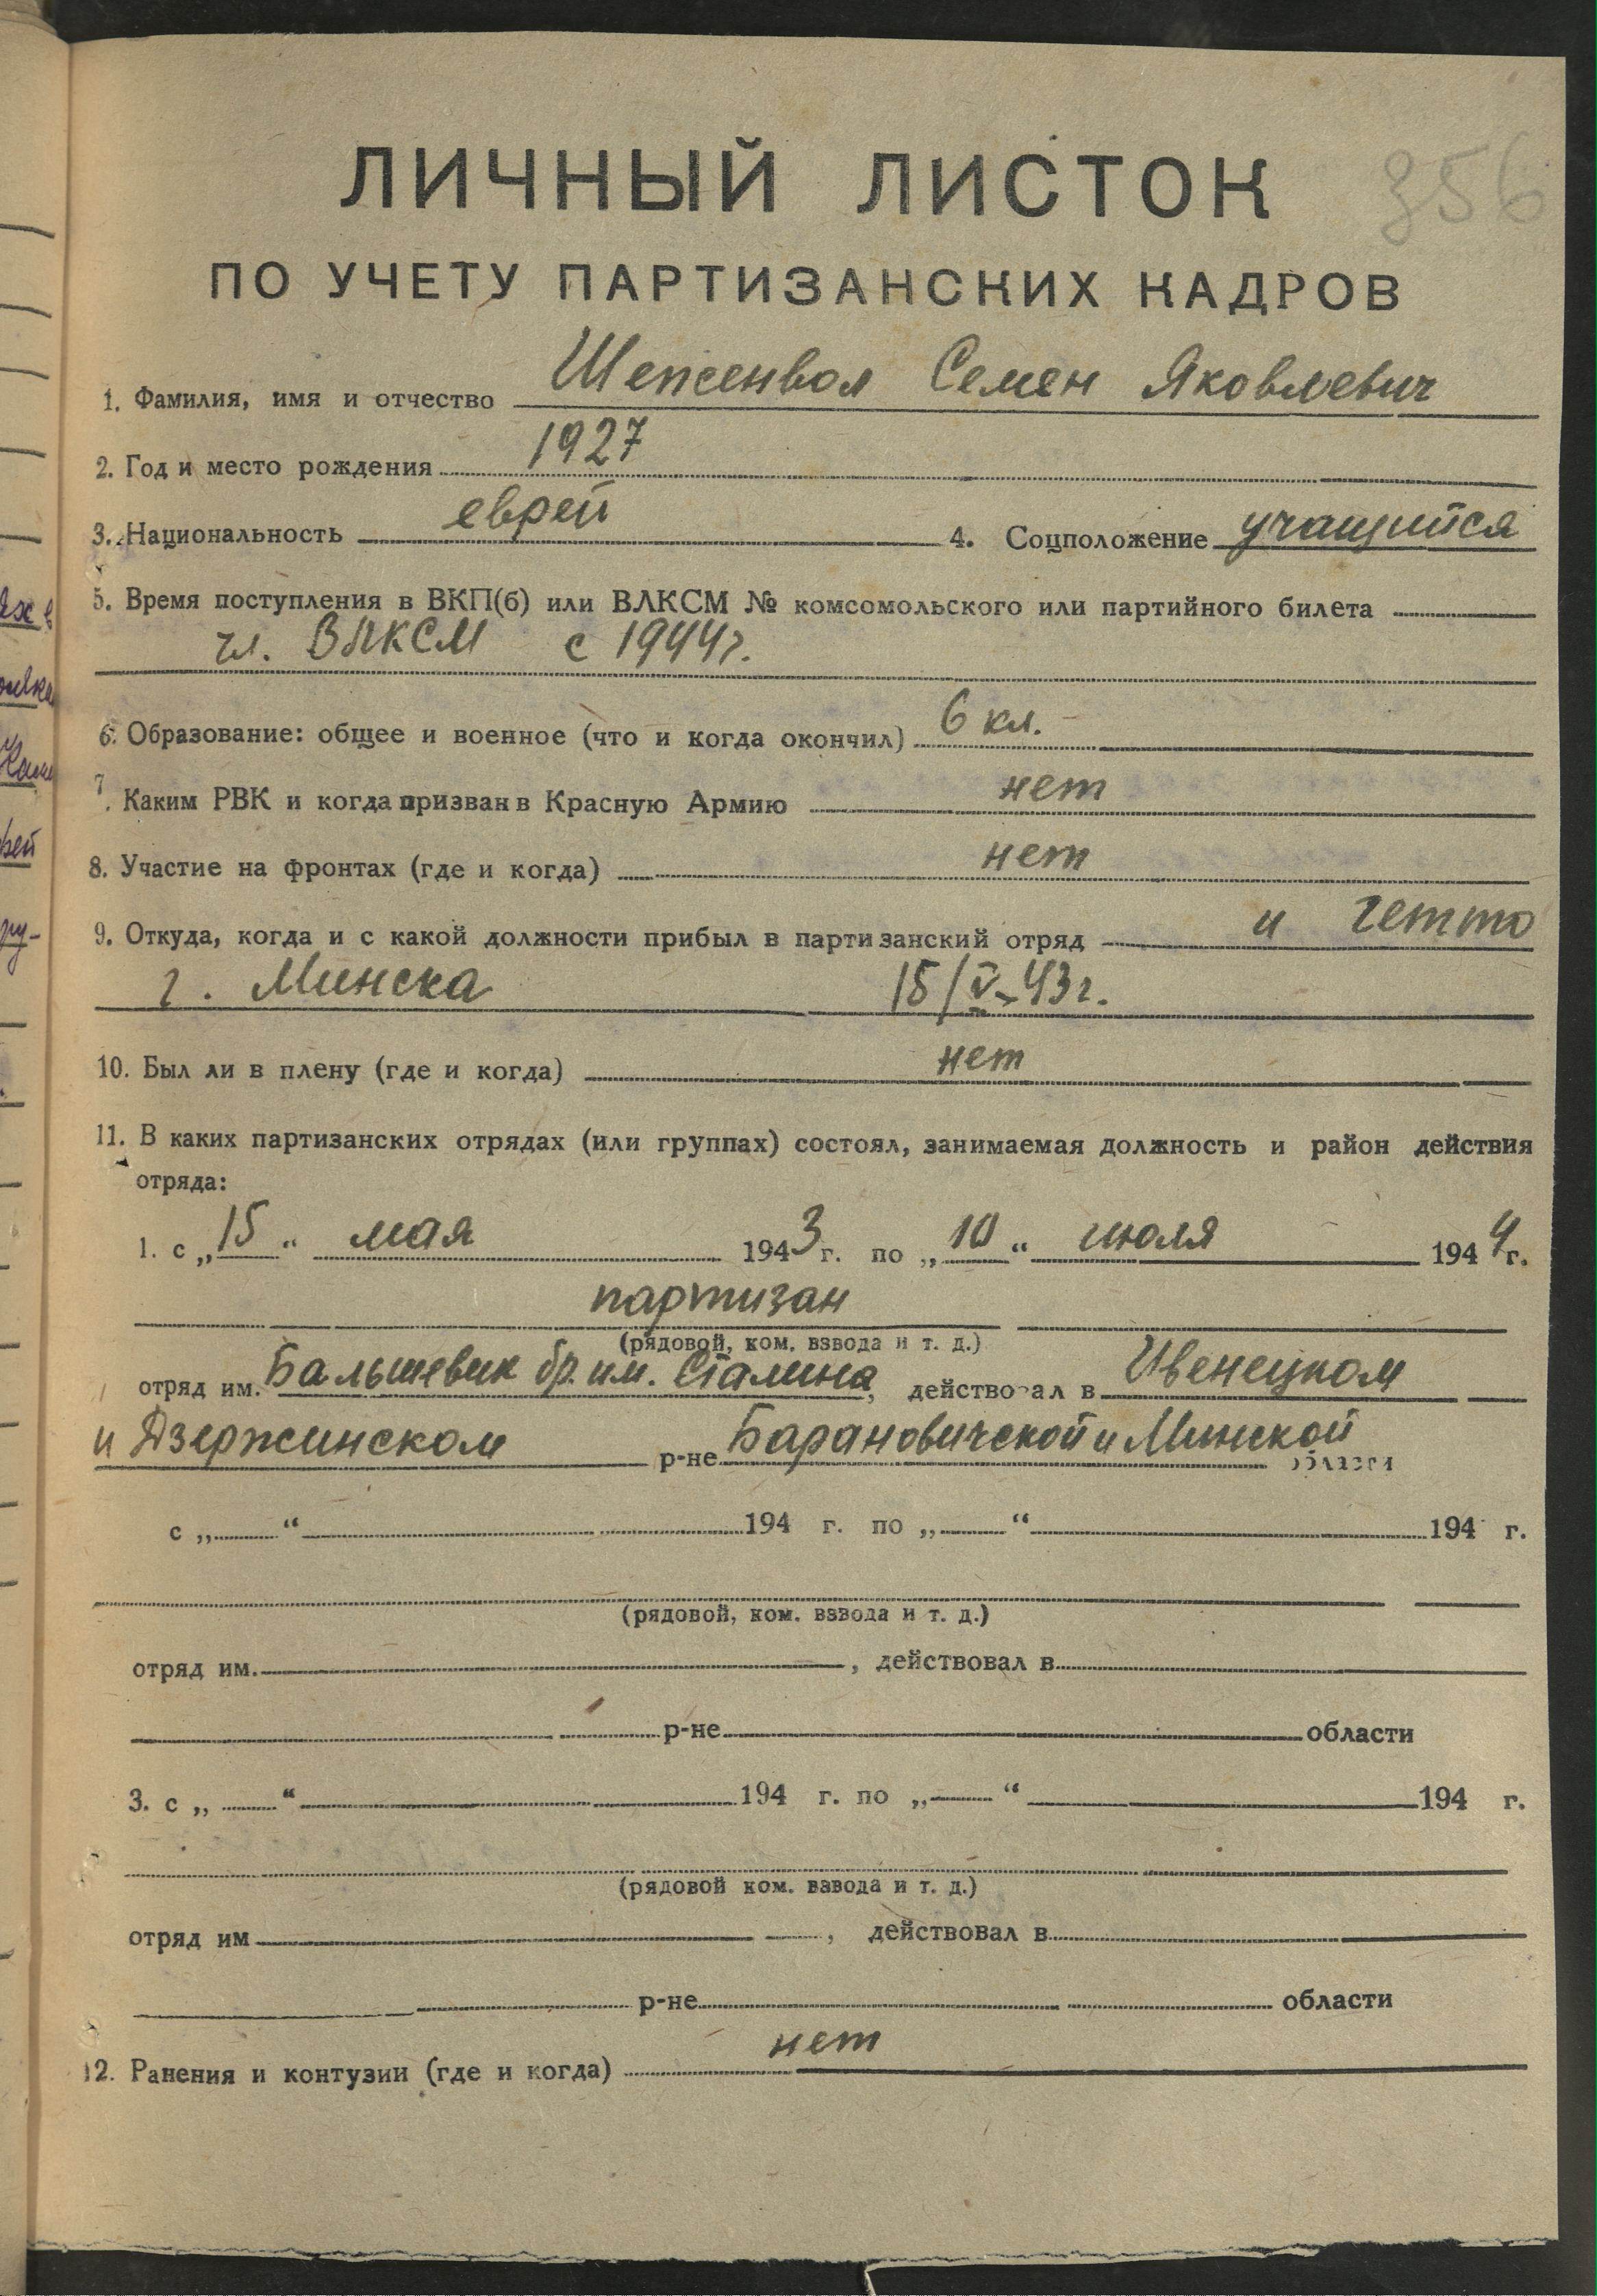 356
ЛИЧНЫЙ ЛИСТОК
ПО УЧЕТУ ПАРТИЗАНСКИХ КАДРОВ
1. Фамилия, имя и отчество Шепсенвол Семен Яковлевич
2. Год и место рождения 1927
3. Национальность еврей 4. Соцположение учащийся
5. Время поступления в ВКП(б) или ВЛКСМ № комсомольского или партийного билета
чл. ВЛКСМ с 1944 г.
6. Образование: общее и военное (что и когда окончил) 6 кл.
7. Каким РВК и когда призван в Красную Армию нет
8. Участие на фронтах (где и когда) нет
9. Откуда, когда и с какой должности прибыл в партизанский отряд и гетто
г. Минска 15/V-43 г.
10. Был ли в плену (где и когда) нет
11. В каких партизанских отрядах (или группах) состоял, занимаемая должность и район действия
отряда:
1. с „15“ мая 1943 г. по „10“ июля 1944 г.
партизан
(рядовой, ком. взвода и т. д.)
отряд им. Бальшевик бр. им. Сталина, действовал в Ивенецком
и Дзержинском р-не Барановичской и Минской области
с „ “ 194 г. по „ “ 194 г.
(рядовой, ком. взвода и т. д.)
отряд им. , действовал в
р-не области
3. с „ “ 194 г. по „ “ 194 г.
(рядовой ком. взвода и т. д.)
отряд им , действовал в
р-не области
12. Ранения и контузии (где и когда) нет